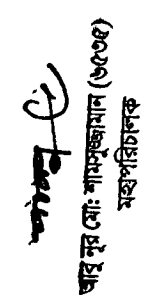 আবু নূর মো: শামসুজ্জামান (৬৫৩৫)
মহাপরিচালক